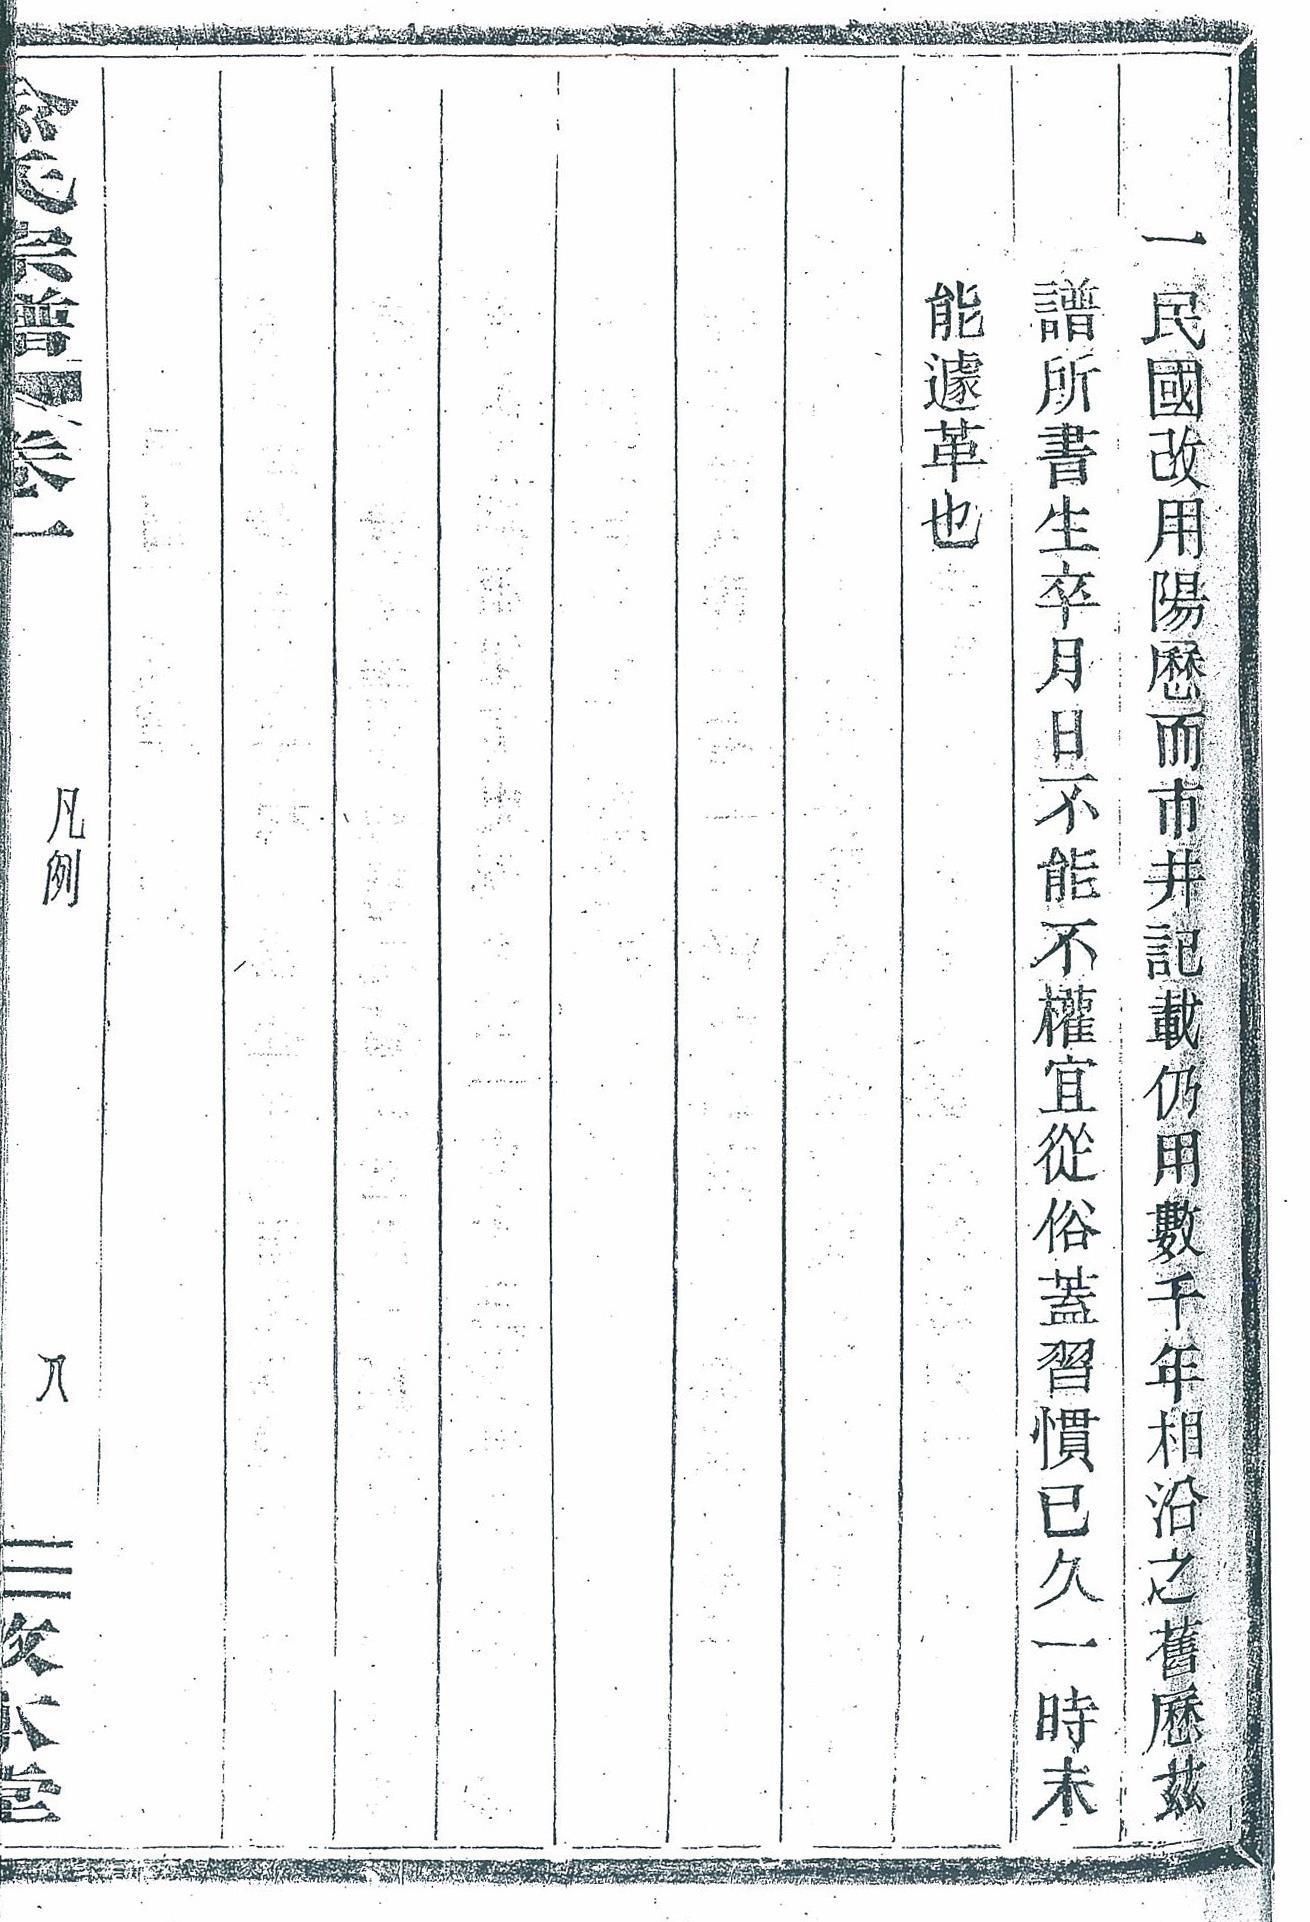 一民國改用陽歷而市井記載仍用數千年相沿之舊歷茲
譜所書生卒月日不能不權宜從俗蓋習慣已久一時未
能遽革也
氏宗譜 卷一
凡例
八
三 本堂